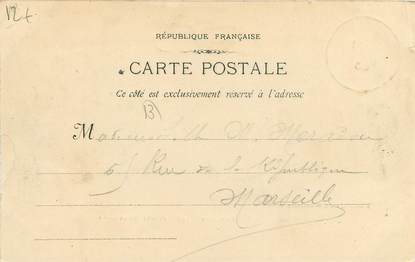 12f
RÉPUBLIQUE FRANÇAISE
CARTE POSTALE
Ce côté est exclusivement réservé à l'adresse
13
Mademoiselle M.
5 Rue de la République
Marseille